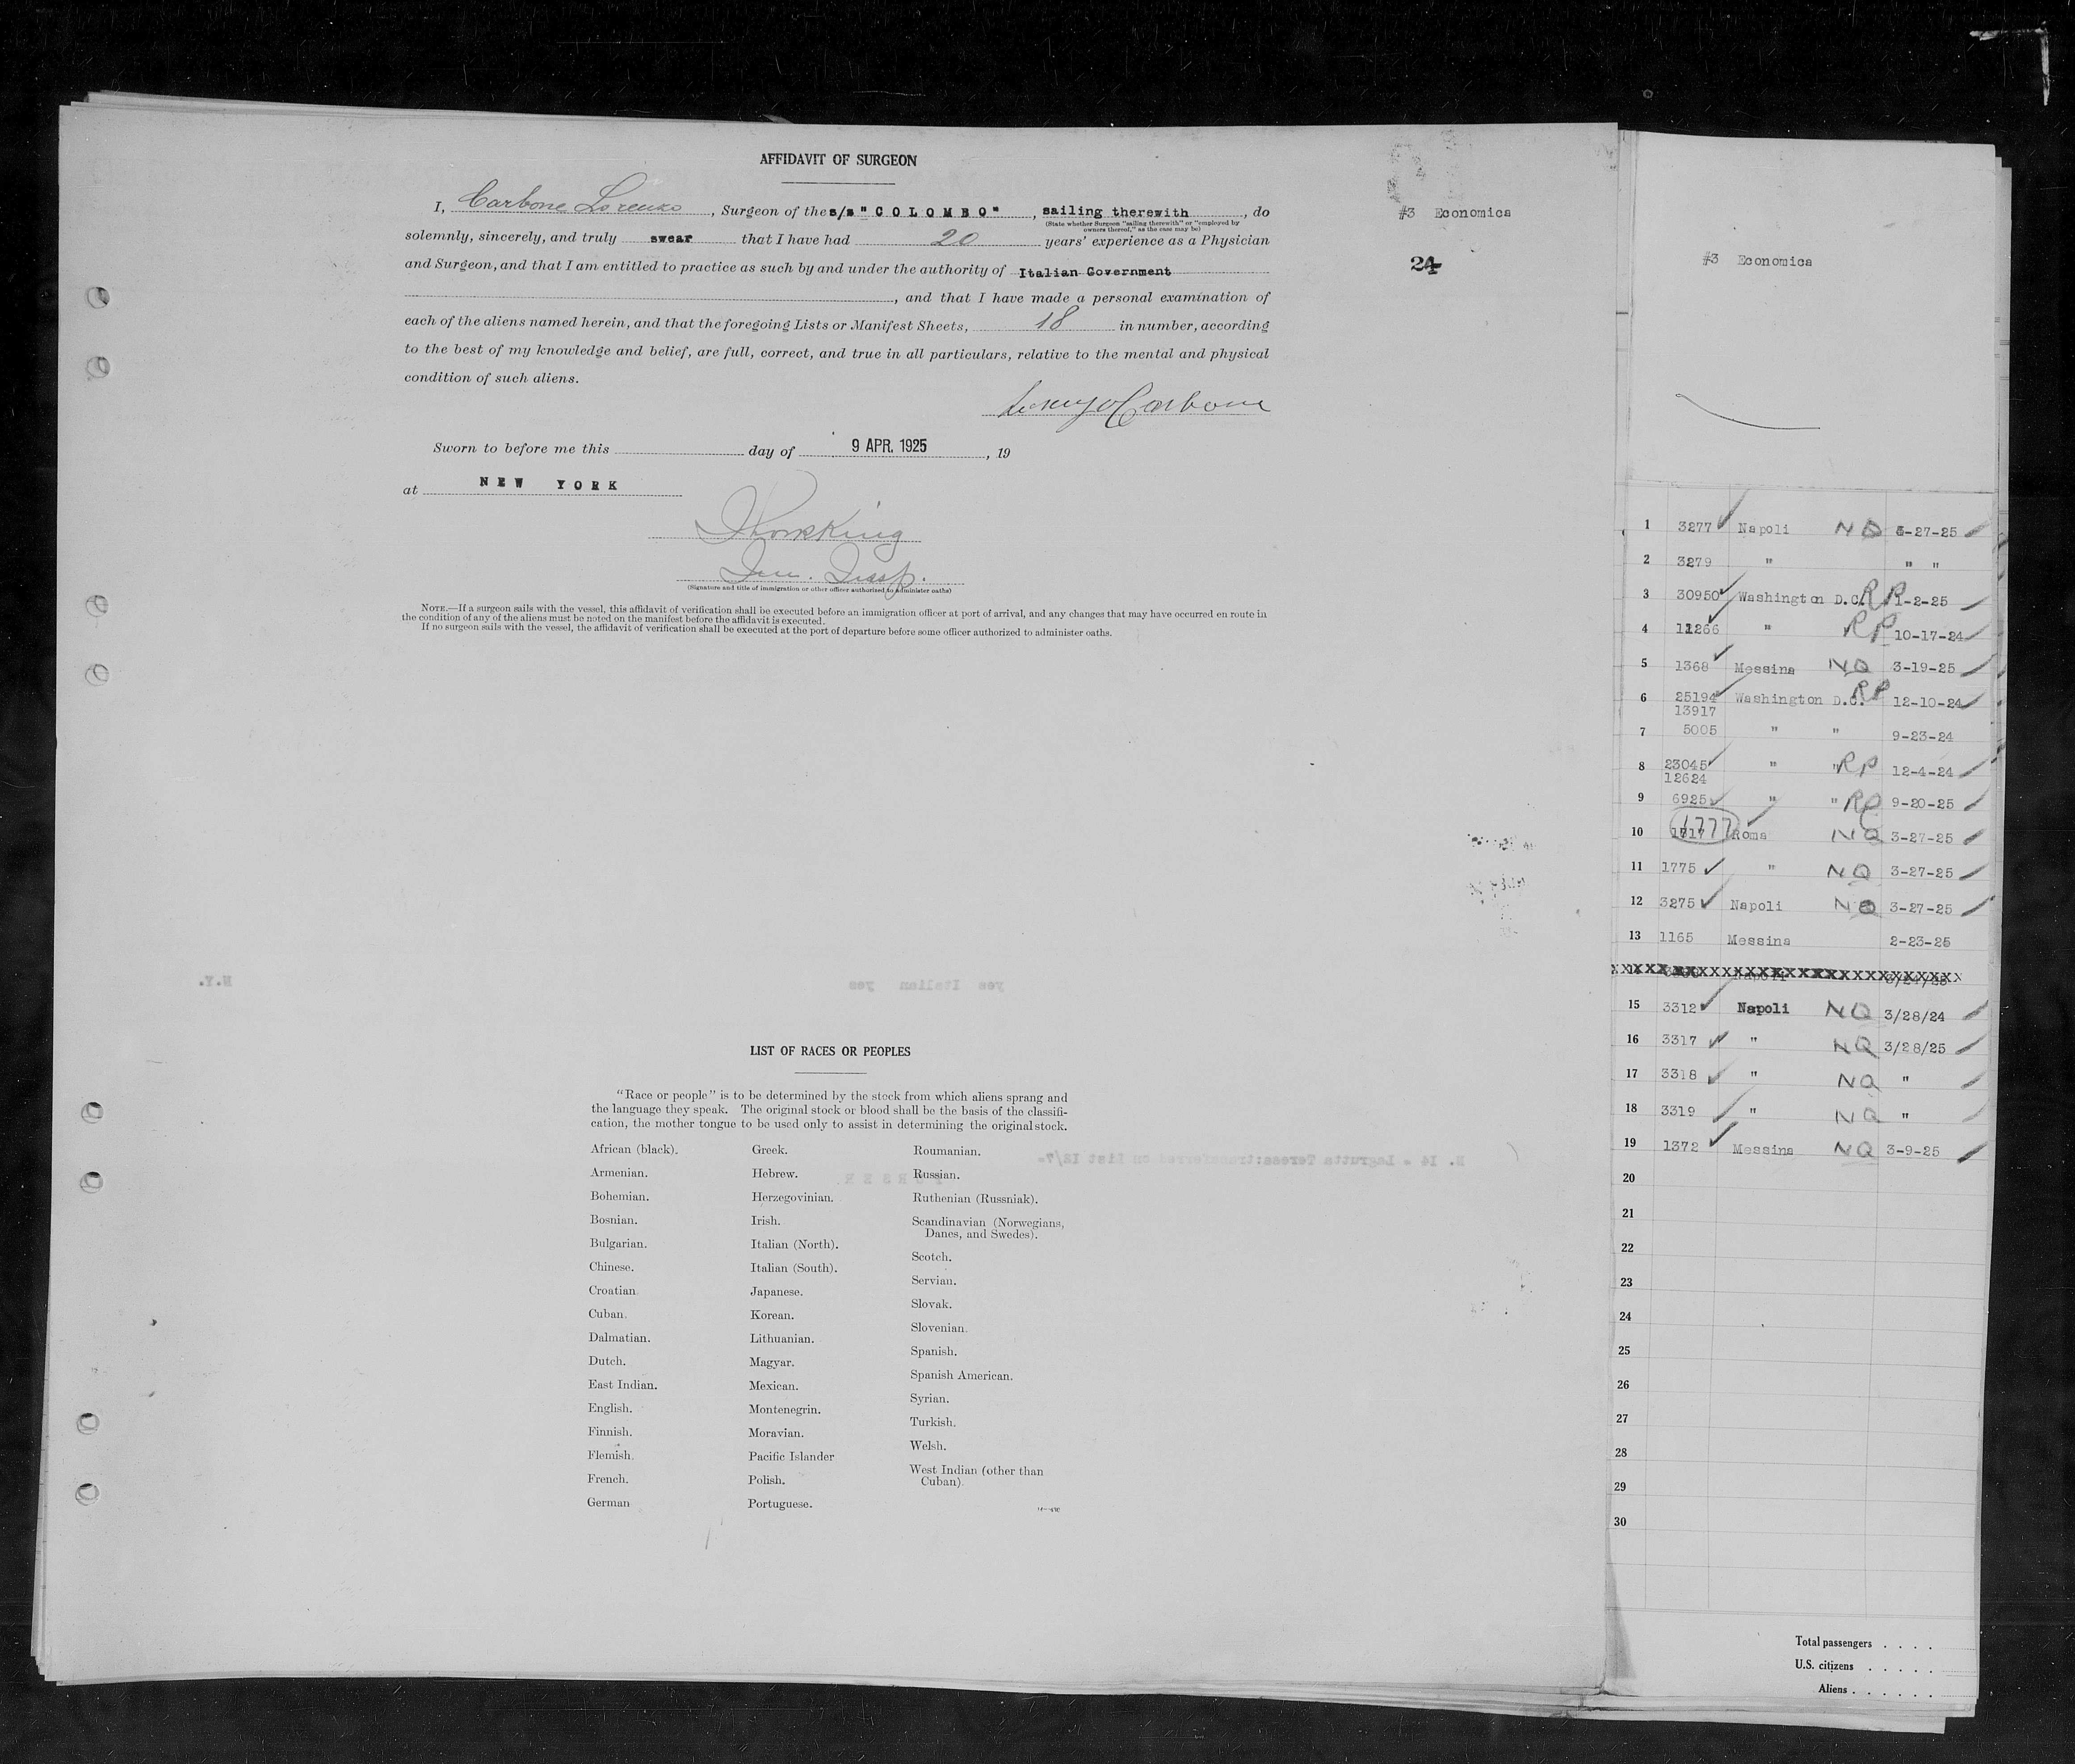 AFFIDAVIT OF SURGEON
I, Carbone Lorenzo, Surgeon of the s/s "COLOMBO", sailing therewith, do
(State whether Surgeon "sailing therewith" or "employed by
owners thereof," as the case may be)
solemnly, sincerely, and truly swear that I have had 20 years' experience as a Physician
and Surgeon, and that I am entitled to practice as such by and under the authority of Italian Government
, and that I have made a personal examination of
each of the aliens named herein, and that the foregoing Lists or Manifest Sheets, 18 in number, according
to the best of my knowledge and belief, are full, correct, and true in all particulars, relative to the mental and physical
condition of such aliens.
Lorenzo Carbone
Sworn to before me this day of 9 APR. 1925, 19
at NEW YORK
Imm. Insp.
(Signature and title of immigration or other officer authorized to administer oaths)
NOTE.—If a surgeon sails with the vessel, this affidavit of verification shall be executed before an immigration officer at port of arrival, and any changes that may have occurred en route in
the condition of any of the aliens must be noted on the manifest before the affidavit is executed.
If no surgeon sails with the vessel, the affidavit of verification shall be executed at the port of departure before some officer authorized to administer oaths.
#3 Economica
24
LIST OF RACES OR PEOPLES
"Race or people" is to be determined by the stock from which aliens sprang and
the language they speak. The original stock or blood shall be the basis of the classifi-
cation, the mother tongue to be used only to assist in determining the original stock.
African (black).
Armenian.
Bohemian.
Bosnian.
Bulgarian.
Chinese.
Croatian.
Cuban.
Dalmatian.
Dutch.
East Indian.
English.
Finnish.
Flemish.
French.
German
Greek.
Hebrew.
Herzegovinian.
Irish.
Italian (North).
Italian (South).
Japanese.
Korean.
Lithuanian.
Magyar.
Mexican.
Montenegrin.
Moravian.
Pacific Islander
Polish.
Portuguese.
Roumanian.
Russian.
Ruthenian (Russniak).
Scandinavian (Norwegians,
Danes, and Swedes).
Scotch.
Servian.
Slovak.
Slovenian.
Spanish.
Spanish American.
Syrian.
Turkish.
Welsh.
West Indian (other than
Cuban).
#3 Economica
1 3277 Napoli NQ 3-27-25
2 3279 " " "
3 30950 Washington D.C. RP 1-2-25
4 11266 " RP 10-17-24
5 1368 Messina NQ 3-19-25
6 25194 Washington D.C. RP 12-10-24
13917
7 5005 " " 9-23-24
8 23045 " " RP 12-4-24
12624
9 6925 " " RP 9-20-25
10 1777 Roma NQ 3-27-25
11 1775 " NQ 3-27-25
12 3275 Napoli NQ 3-27-25
13 1165 Messina 2-23-25
15 3312 Napoli NQ 3/28/24
16 3317 " NQ 3/28/25
17 3318 " NQ "
18 3319 " NQ "
19 1372 Messina NQ 3-9-25
20
21
22
23
24
25
26
27
28
29
30
Total passengers . . . .
U.S. citizens . . . . .
Aliens . . . . . .